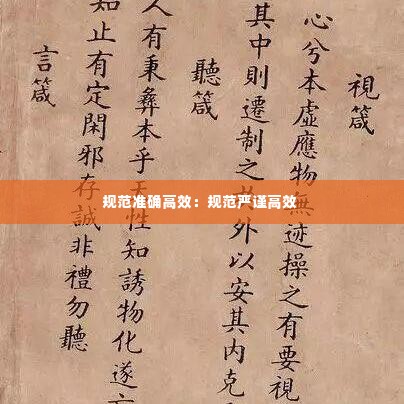 視箴
心兮本虛應物無迹操之有要視
其中則遷制之外以安其內克
聽箴
人有秉彝本乎天性知誘物化遂
知止有定閑邪存誠非禮勿聽
言箴
规范准确高效：规范严谨高效